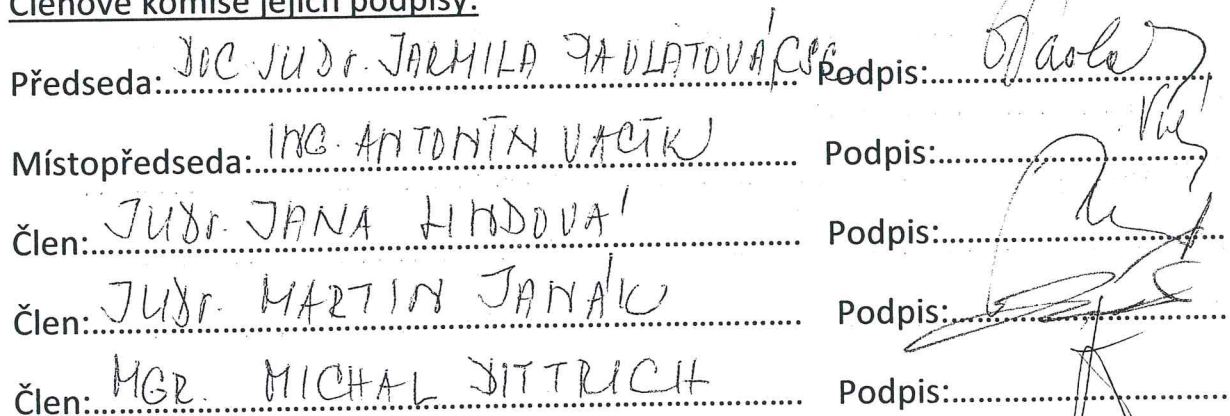 Členové komise jejich podpisy:
Předseda: DOC. JUDr. JARMILA PAVLATOVÁ, CSc. Podpis:
Místopředseda: ING. ANTONÍN VACÍK Podpis:
Člen: JUDr. JANA Podpis:
Člen: JUDr. MARTIN JANÁK Podpis:
Člen: MGR. MICHAL DITTRICH Podpis: